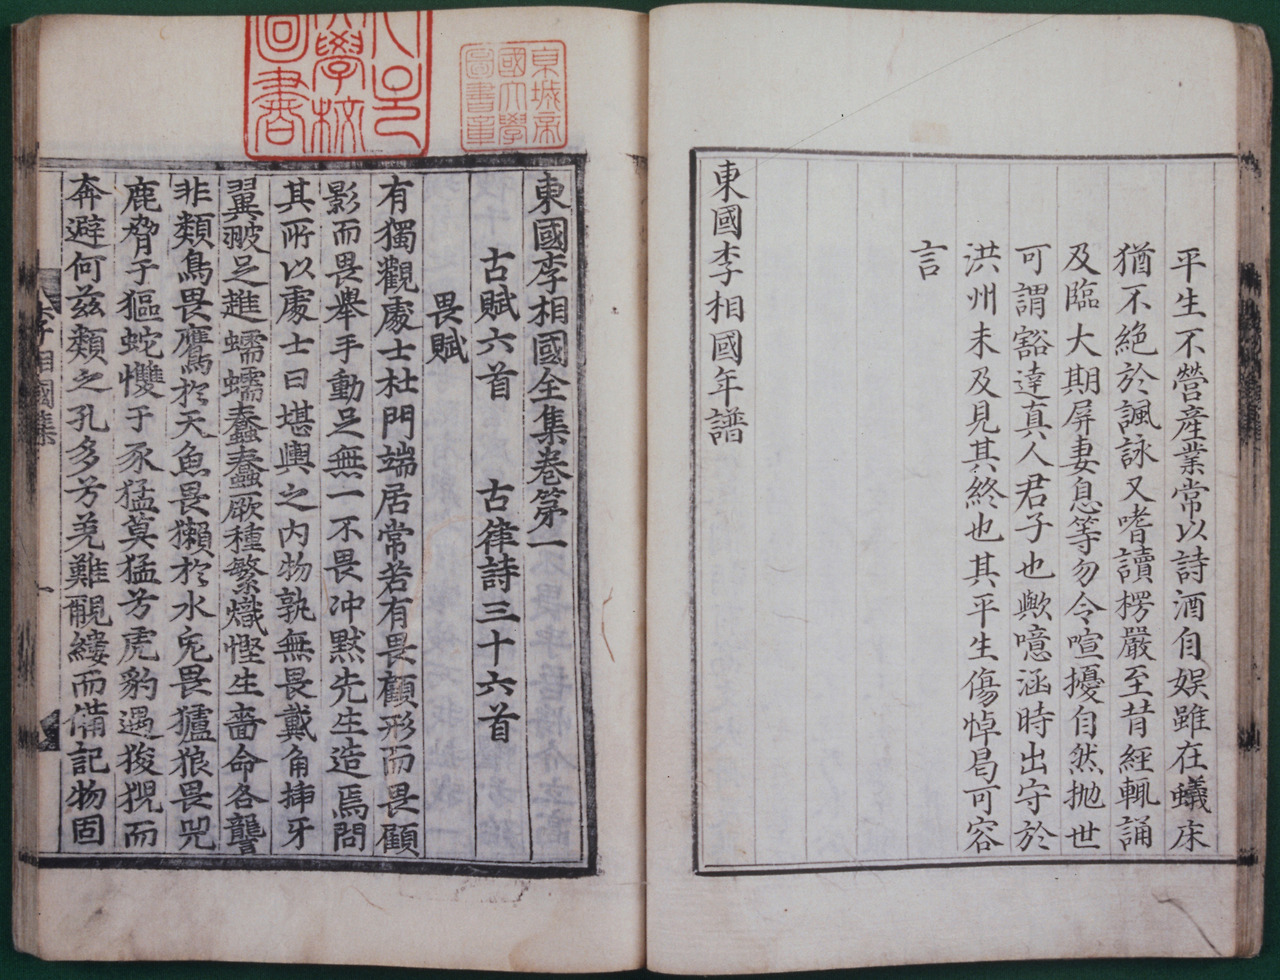 平生不營産業常以詩酒自娛雖在蟻床
猶不絕於諷詠又嗜讀楞嚴至昔經輒誦
及臨大期屏妻息等勿令喧擾自然抛世
可謂豁達真人君子也歟噫涵時出守於
洪州未及見其終也其平生傷悼曷可容
言
東國李相國年譜
京城帝
國大學
圖書章
學校
圖書
東國李相國全集卷第一
古賦六首 古律詩三十六首
畏賦
有獨觀處士杜門端居常若有畏顧形而畏顧
影而畏舉手動足無一不畏冲默先生造焉問
其所以處士曰堪輿之內物孰無畏戴角揷牙
翼翍足趡蠕蠕蠢蠢厥種繁熾慳生嗇命各讋
非類鳥畏鷹於天魚畏獺於水兎畏獹狼畏兕
鹿脅于貙蛇戄于豕猛莫猛芳虎豹遇狻猊而
奔避何玆類之孔多芳羌難覼縷而備記物固
李相國集
一